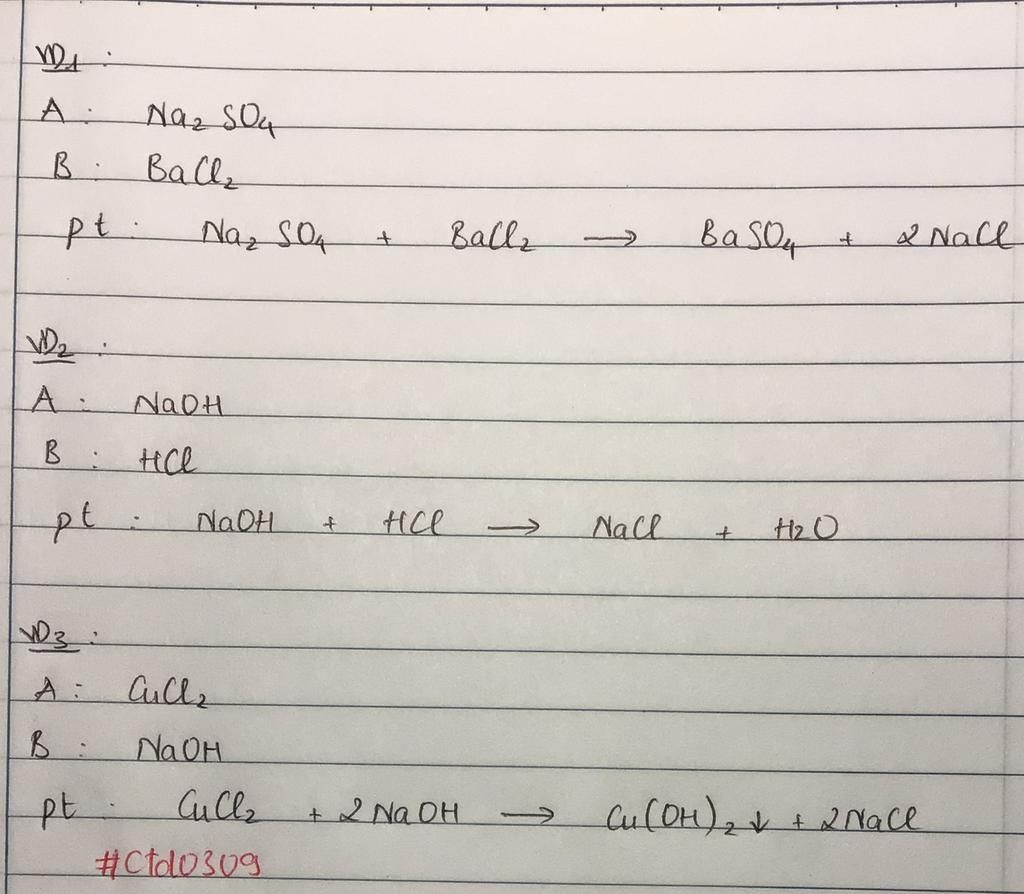 VD1 :
A : Na₂SO₄
B : BaCl₂
pt : Na₂SO₄ + BaCl₂ → BaSO₄ + 2NaCl
VD2 :
A : NaOH
B : HCl
pt : NaOH + HCl → NaCl + H₂O
VD3 :
A : CuCl₂
B : NaOH
pt : CuCl₂ + 2NaOH → Cu(OH)₂↓ + 2NaCl
#Ctd0309